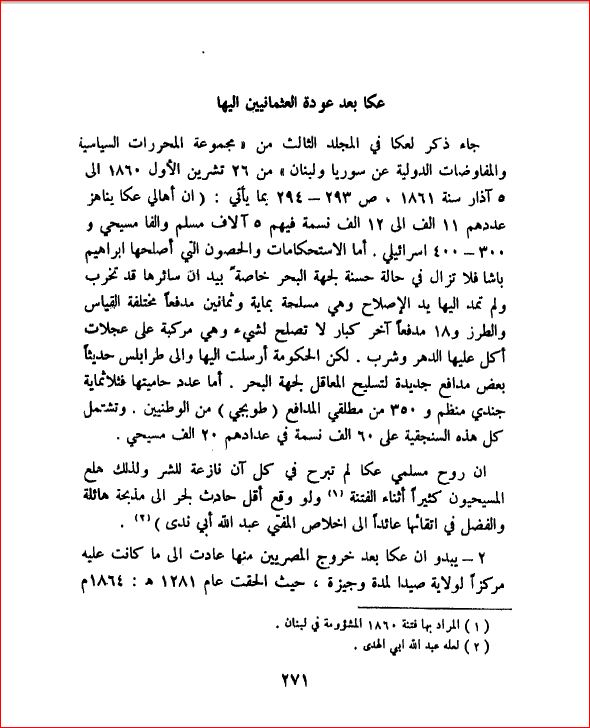 عكا بعد عودة العثمانيين اليها
جاء ذكر لعكا في المجلد الثالث من « مجموعة المحررات السياسية
والمفاوضات الدولية عن سوريا ولبنان » من ٢٦ تشرين الأول ١٨٦٠ الى
٥ آذار سنة ١٨٦١ ، ص ٢٩٣ – ٢٩٤ بما يأتي : ( ان أهالي عكا يناهز
عددهم ١١ الف الى ١٢ الف نسمة فيهم ٥ آلاف مسلم والفا مسيحي و
٣٠٠ – ٤٠٠ اسرائيلي . أما الاستحكامات والحصون التي أصلحها ابراهيم
باشا فلا تزال في حالة حسنة لجهة البحر خاصة ً بيد ان سائرها قد تخرب
ولم تمد اليها يد الإصلاح وهي مسلحة بماية وثمانين مدفعاً مختلفة القياس
والطرز و١٨ مدفعاً آخر كبار لا تصلح لشيء وهي مركبة على عجلات
أكل عليها الدهر وشرب . لكن الحكومة أرسلت اليها والى طرابلس حديثاً
بعض مدافع جديدة لتسليح المعاقل لجهة البحر . أما عدد حاميتها فثلاثماية
جندي منظم و ٣٥٠ من مطلقي المدافع ( طوبجي ) من الوطنيين . وتشتمل
كل هذه السنجقية على ٦٠ الف نسمة في عدادهم ٢٠ الف مسيحي .
ان روح مسلمي عكا لم تبرح في كل آن نازعة للشر ولذلك هلع
المسيحيون كثيراً أثناء الفتنة (١) ولو وقع أقل حادث لجر الى مذبحة هائلة
والفضل في اتقائها عائداً الى اخلاص المفتي عبد الله أبي ندى ) (٢) .
٢ – يبدو ان عكا بعد خروج المصريين منها عادت الى ما كانت عليه
مركزاً لولاية صيدا لمدة وجيزة ، حيث الحقت عام ١٢٨١ هـ : ١٨٦٤م
( ١ ) المراد بها فتنة ١٨٦٠ المشؤومة في لبنان .
( ٢ ) لعله عبد الله ابي الهدى .
٢٧١